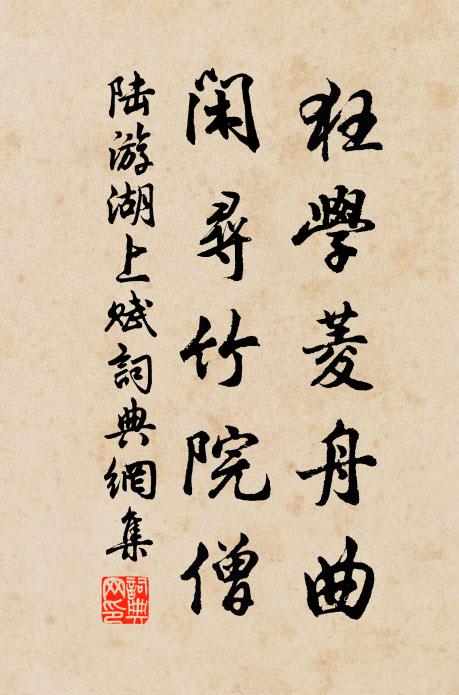 狂學菱舟曲
閑尋竹院僧
陸游湖上賦詞典網集
詞典網印